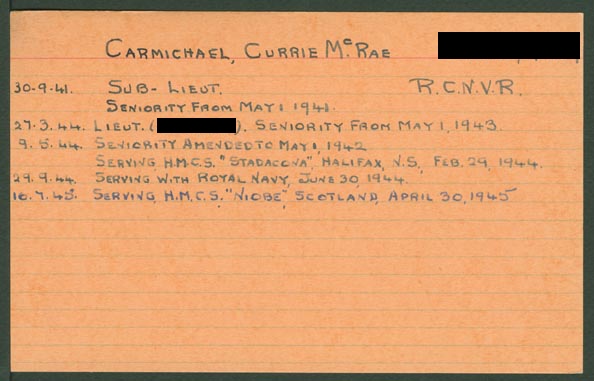 CARMICHAEL, CURRIE McRAE
30-9-41. SUB-LIEUT. R.C.N.V.R.
SENIORITY FROM MAY 1 1941.
27-3-44. LIEUT. ( ). SENIORITY FROM MAY 1, 1943.
9-5-44. SENIORITY AMENDED TO MAY 1, 1942
SERVING H.M.C.S. "STADACONA", HALIFAX, N.S., FEB. 29, 1944.
29.9.44. SERVING WITH ROYAL NAVY, JUNE 30, 1944.
16.7.45. SERVING H.M.C.S. "NIOBE", SCOTLAND, APRIL 30, 1945